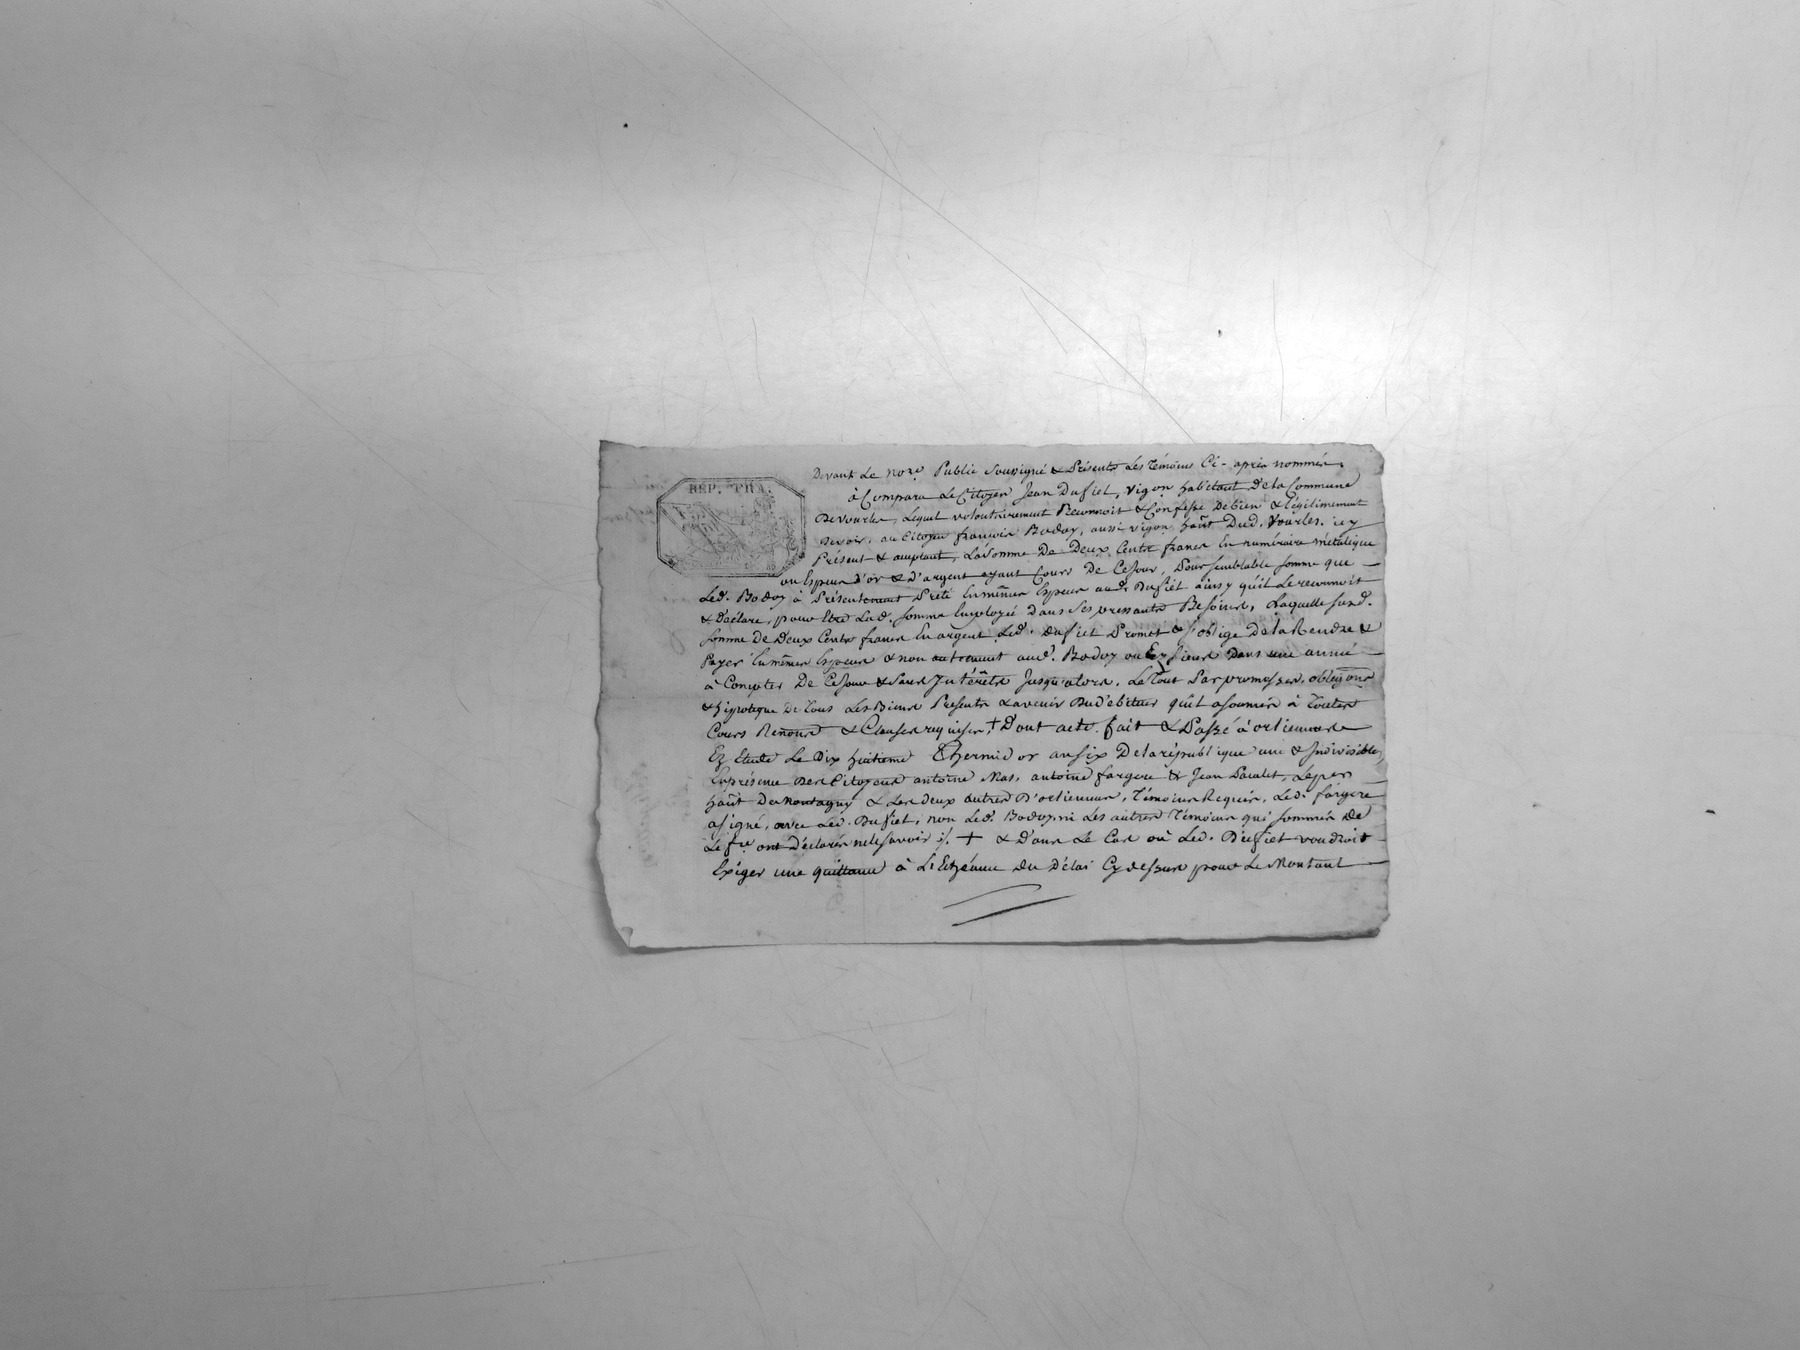 RÉP. FRA.
Devant Le no.re Public soussigné & Présents Les Témoins Ci-après nommés.
à Comparu Le Citoyen Jean Dufiet, vigon habitant De la Commune
De vourles, Lequel volontairement Reconnoit & Confesse De bien & légitimement
Devoir, au Citoyen françois Bodoy, aussi vigon hañt Dud. Vourles. icy
Présent & aceptant, La somme De Deux Cents francs En numéraire métalique
ou Especes D'or & D'argent ayant Cours De Ce Jour, Pour semblable somme que
Led. Bodoy à Présentement Prêté En mêmes Especes aud. Dufiet ainsy qu'il Le reconnoit
& Déclare, pour Etre Lad. somme Employée Dans Ses pressants Besoins, Laquelle susd.
somme De Deux Cents francs En argent Led. Dufiet Promet & s'oblige De la Rendre &
Payer En mêmes Especes & non autrement aud. Bodoy ou Es siens Dans une année
à Compter De Ce Jour & sans Intérêts Jusqu'alors. Le Tout Par promesses, obligons
& hipoteque De Tous Les Biens Présents & avenir Du D'ebiteur qu'il a soumis à Toutes
Cours Renons & Clauses requises, + D'ont acte. fait & Passé à orlienas
Ez Etude Le Dix huitieme Thermidor an six De la république une & Indivisible,
En présence Des Citoyens antoine Mas, antoine fargere & Jean Pacalet, Le per
hañt De montagny & Les Deux autres D'orlienas, Témoins Requis, Led. fargere
a signé, avec Led. Dufiet, non Led. Bodoy, ni Les autres Témoins qui sommés De
Le f.re ont Déclarés ne le savoir ./. + & Dans Le Cas où Led. Dufiet voudroit
Exiger une quittance à L'Echéance du Délai Cy dessus pour Le Montant